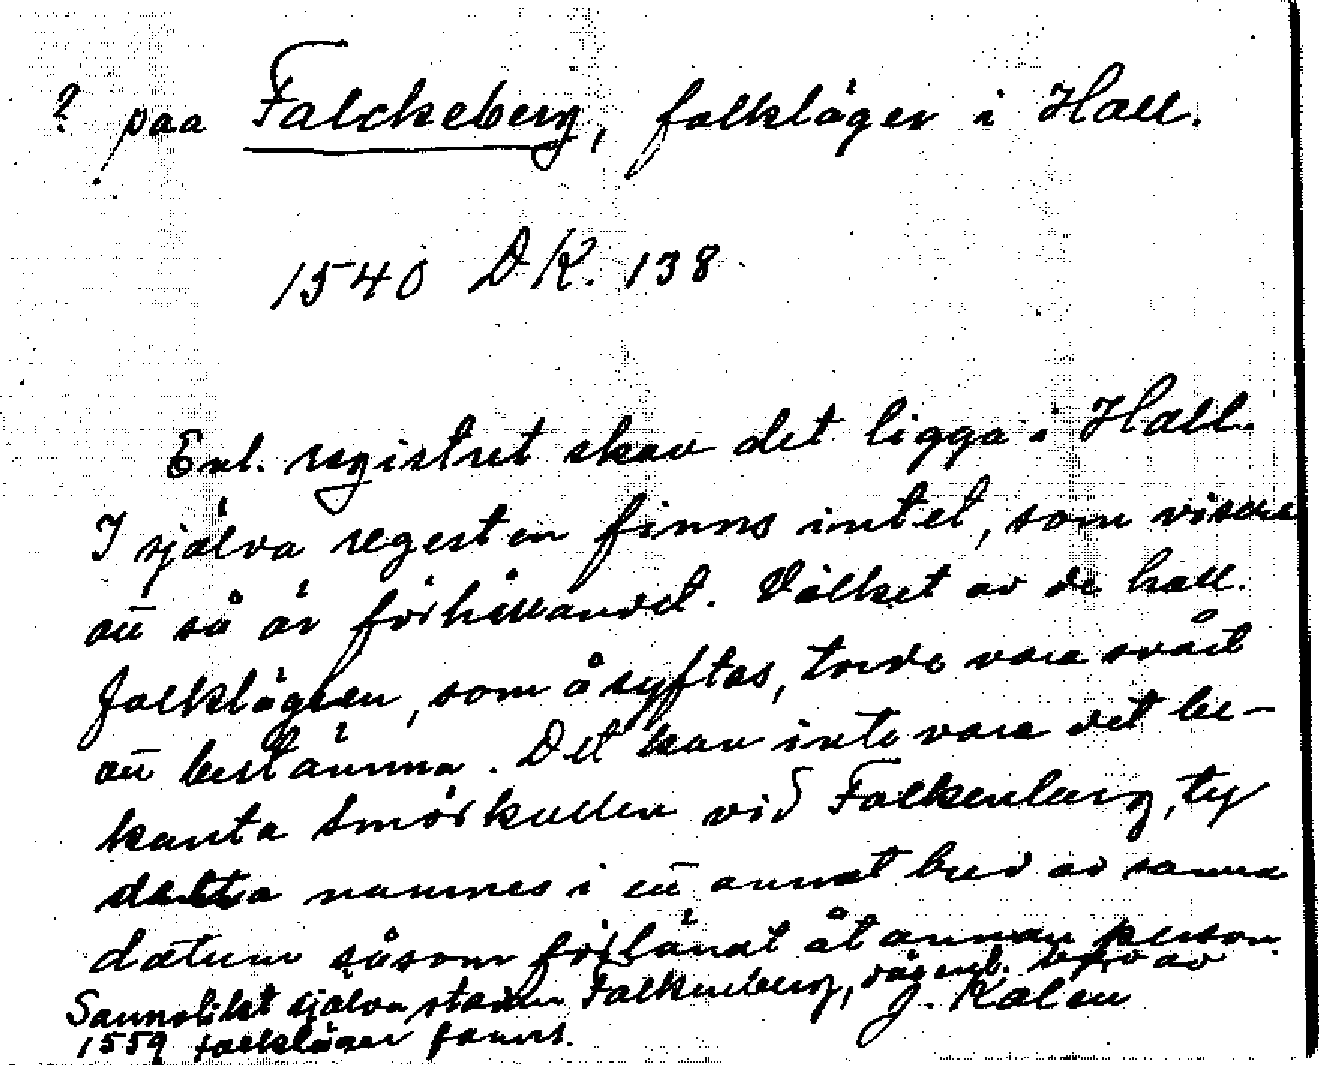 ? paa Falckeberg, folkläger i Hall.
1540 DK. 138
Enl. registret skau det ligga i Hall.
I själva regesten finns intet, som visar
att så är förhållandet. Vilket av de hall.
folklägren, som åsyftas, torde vara svårt
att bestämma. Det kan inte vara det be-
kanta Smörkullen vid Falkenberg, ty
detta namnes i ett annat brev av samma
datum såsom förlänat åt annan person.
J. Kalen
Sannolikt själva staden Falkenberg, där enl. brev av
1559 folkläger fanns.